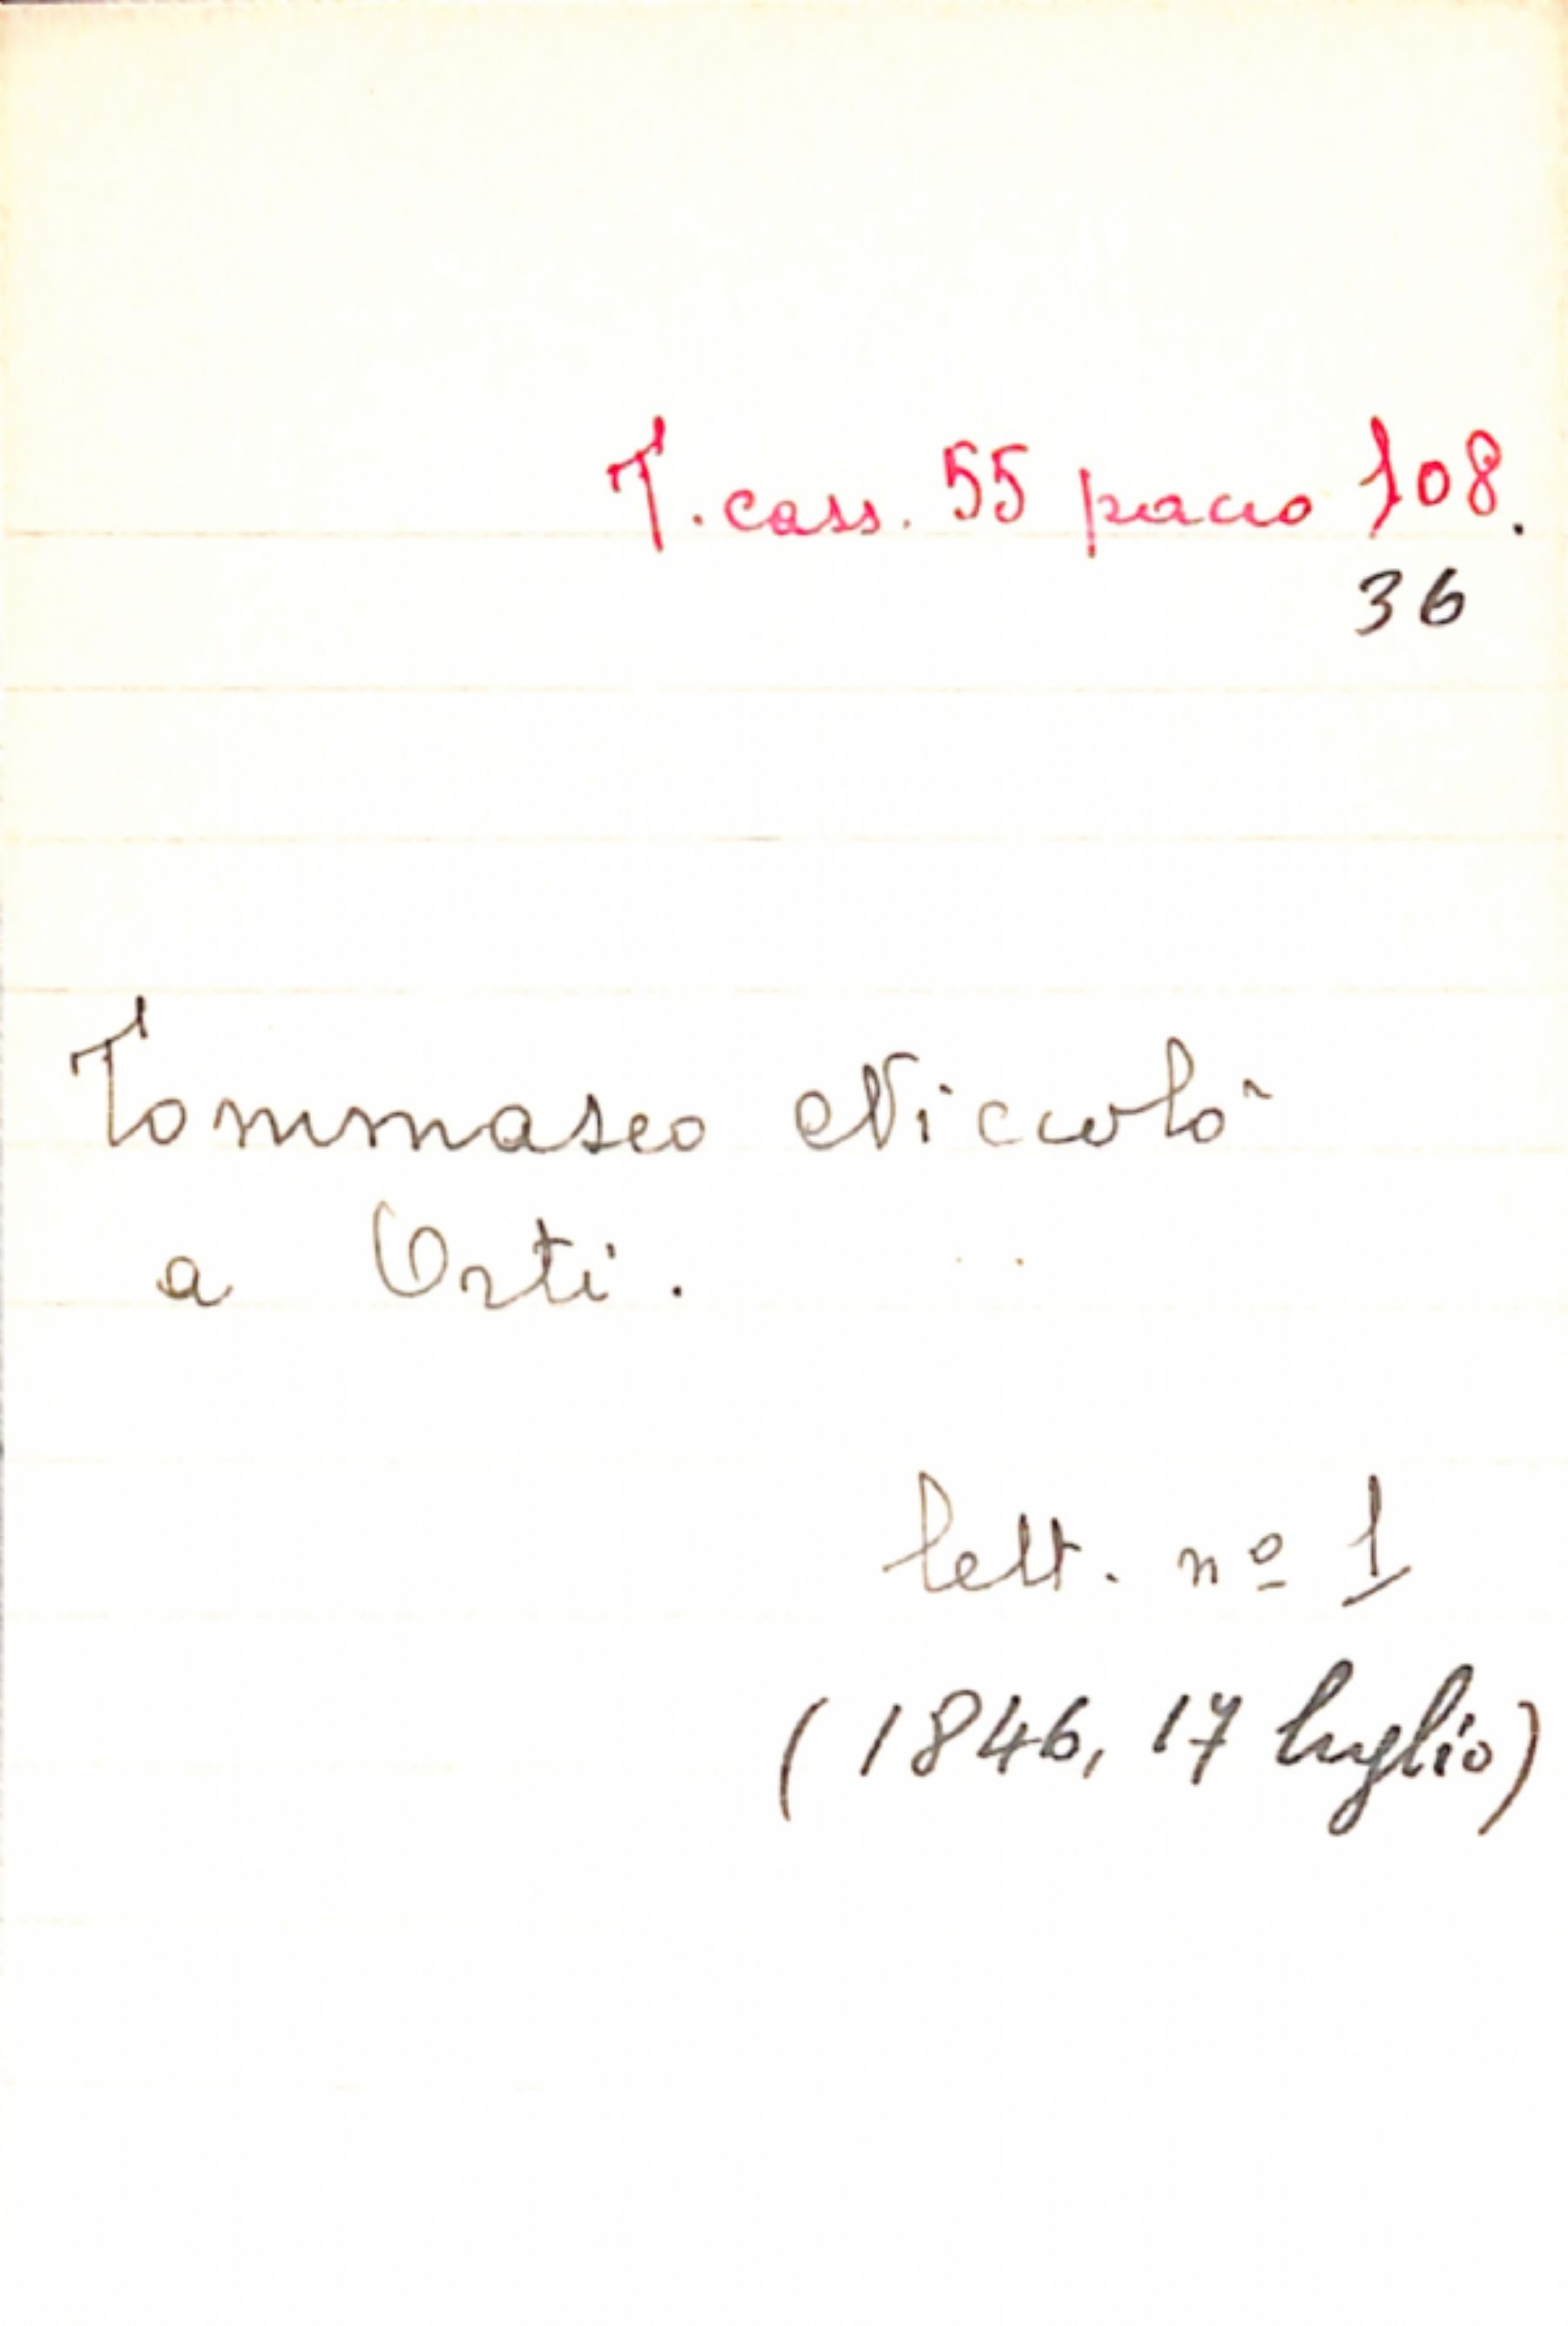 T. cass. 55 pacco 108.
36
Tommaseo Niccolò
a Orti.
lett. nº 1
(1846, 17 luglio)